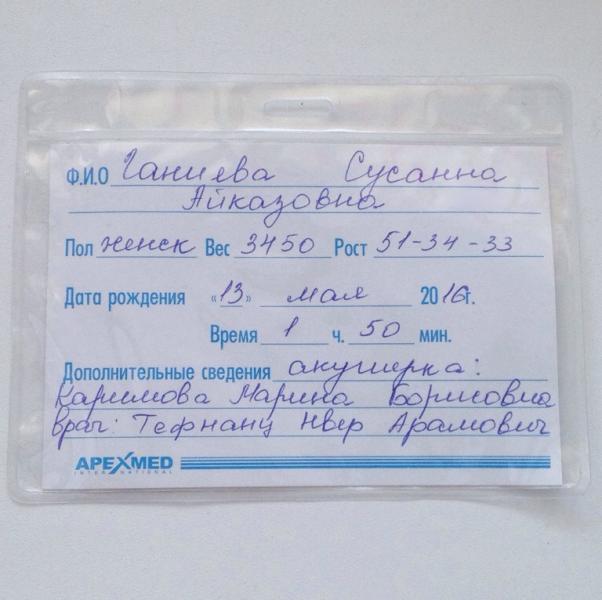 Ф.И.О Ганиева Сусанна
Айказовна
Пол женск Вес 3450 Рост 51-34-33
Дата рождения «13» мая 2016г.
Время 1 ч. 50 мин.
Дополнительные сведения акушерка:
Каримова Марина Борисовна
врач: Тефнанц Нвер Арамович
APEXMED
INTERNATIONAL